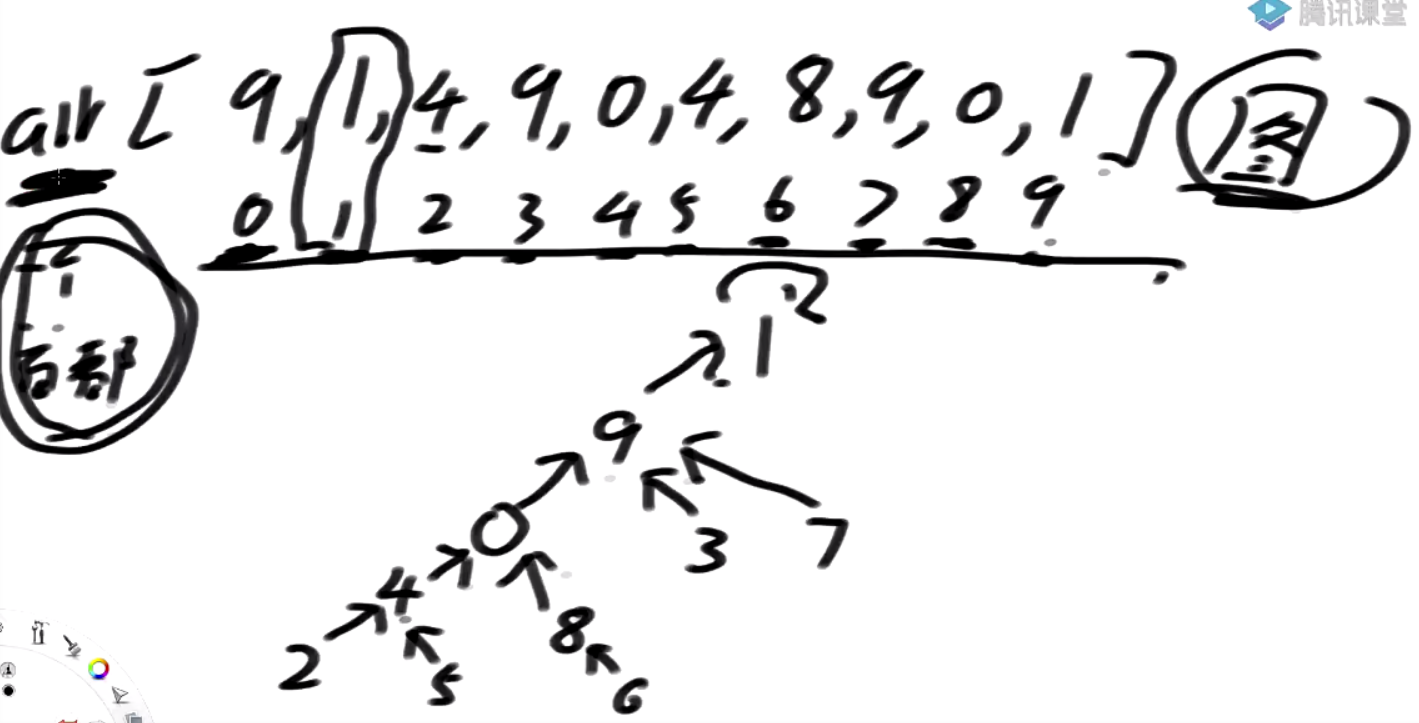 腾讯课堂
arr [ 9, 1, 4, 9, 0, 4, 8, 9, 0, 1 ] (图)
0 1 2 3 4 5 6 7 8 9
1
首都
1
9
0 3 7
4 8
2 5 6